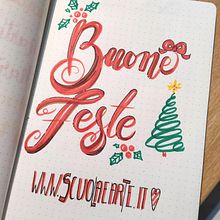 Buone
Feste
www.scuolaearte.it